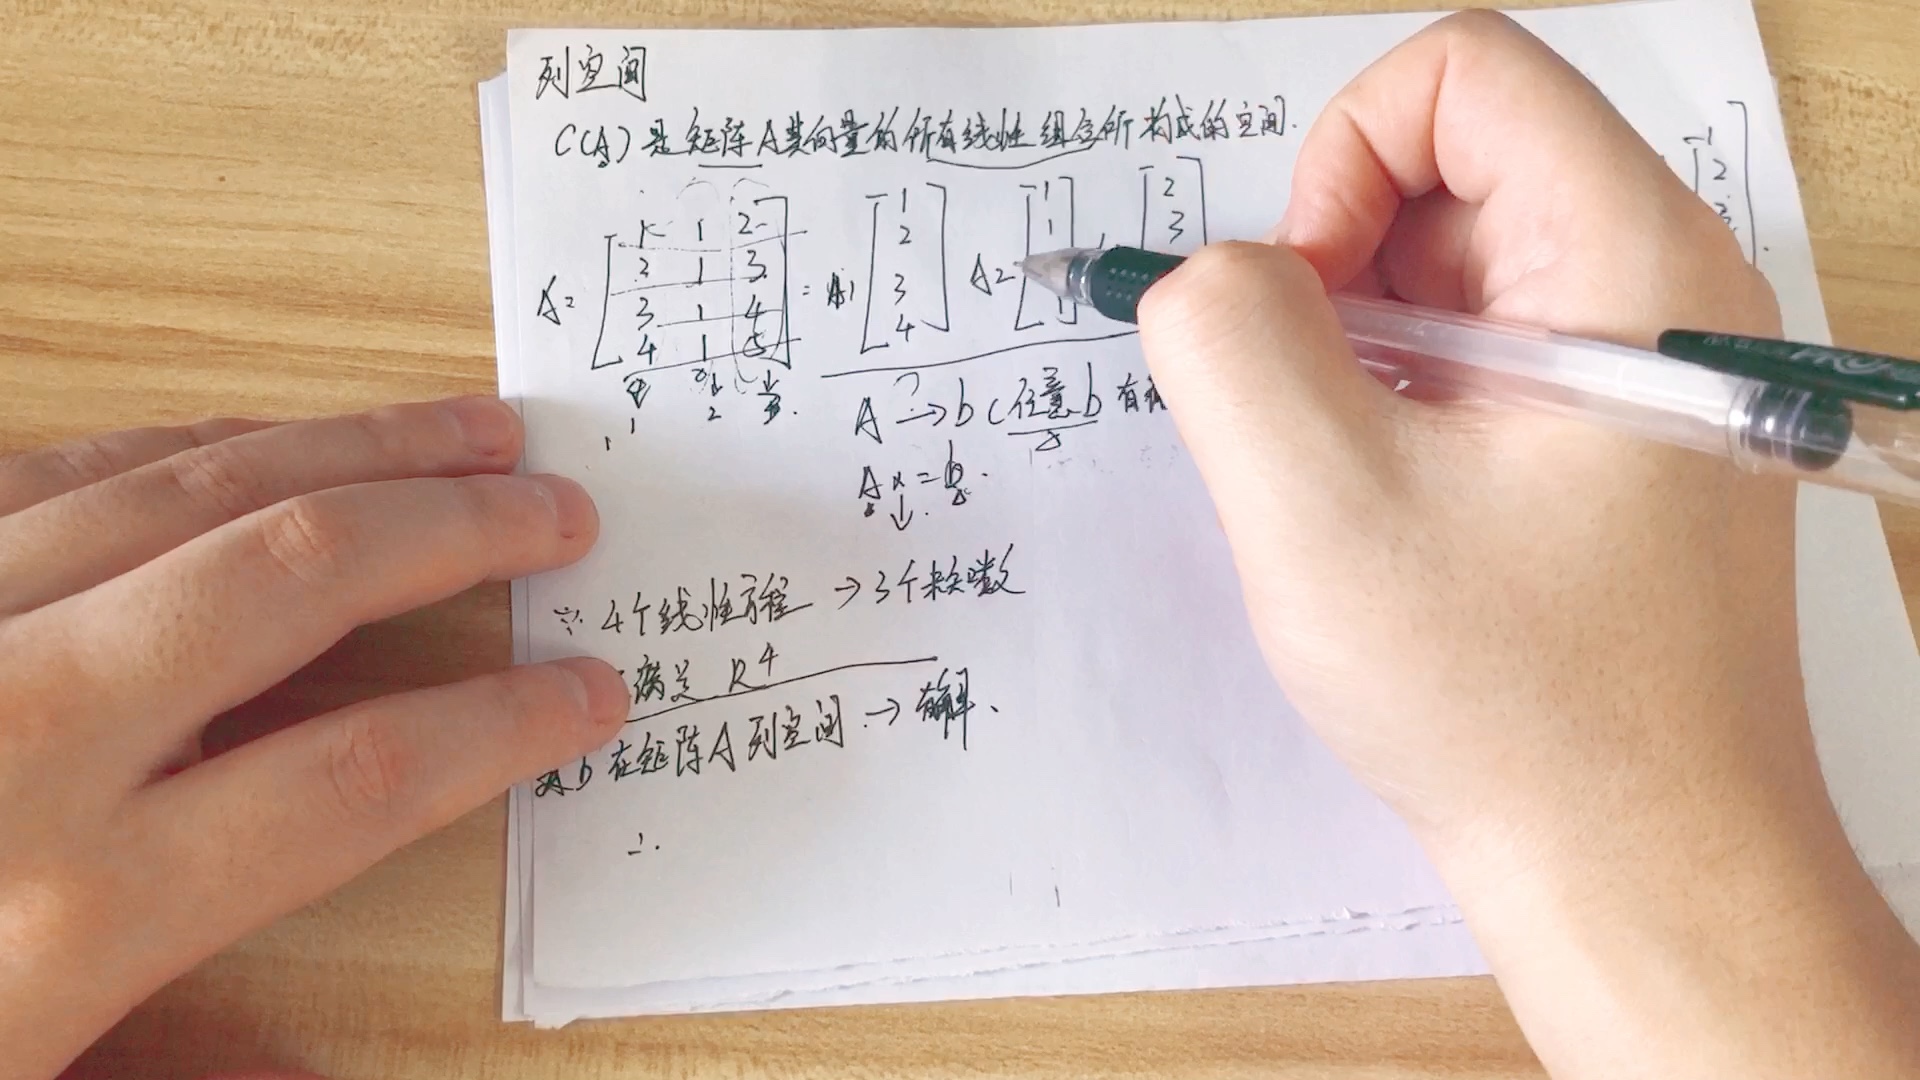 列空间
C(A) 是矩阵A其向量的所有线性组合所构成的空间.
A= [1 1 2
2 1 3
3 1 4
4 1 5] = A1 [1 2 3 4] A2 [1 1 1] [2 3
1 2 3.
A → b (任意b 有
?
Ax = b.
∵ 4个线性方程 → 3个未知数
满足 R4
b 在矩阵A列空间 → 有解、
∴